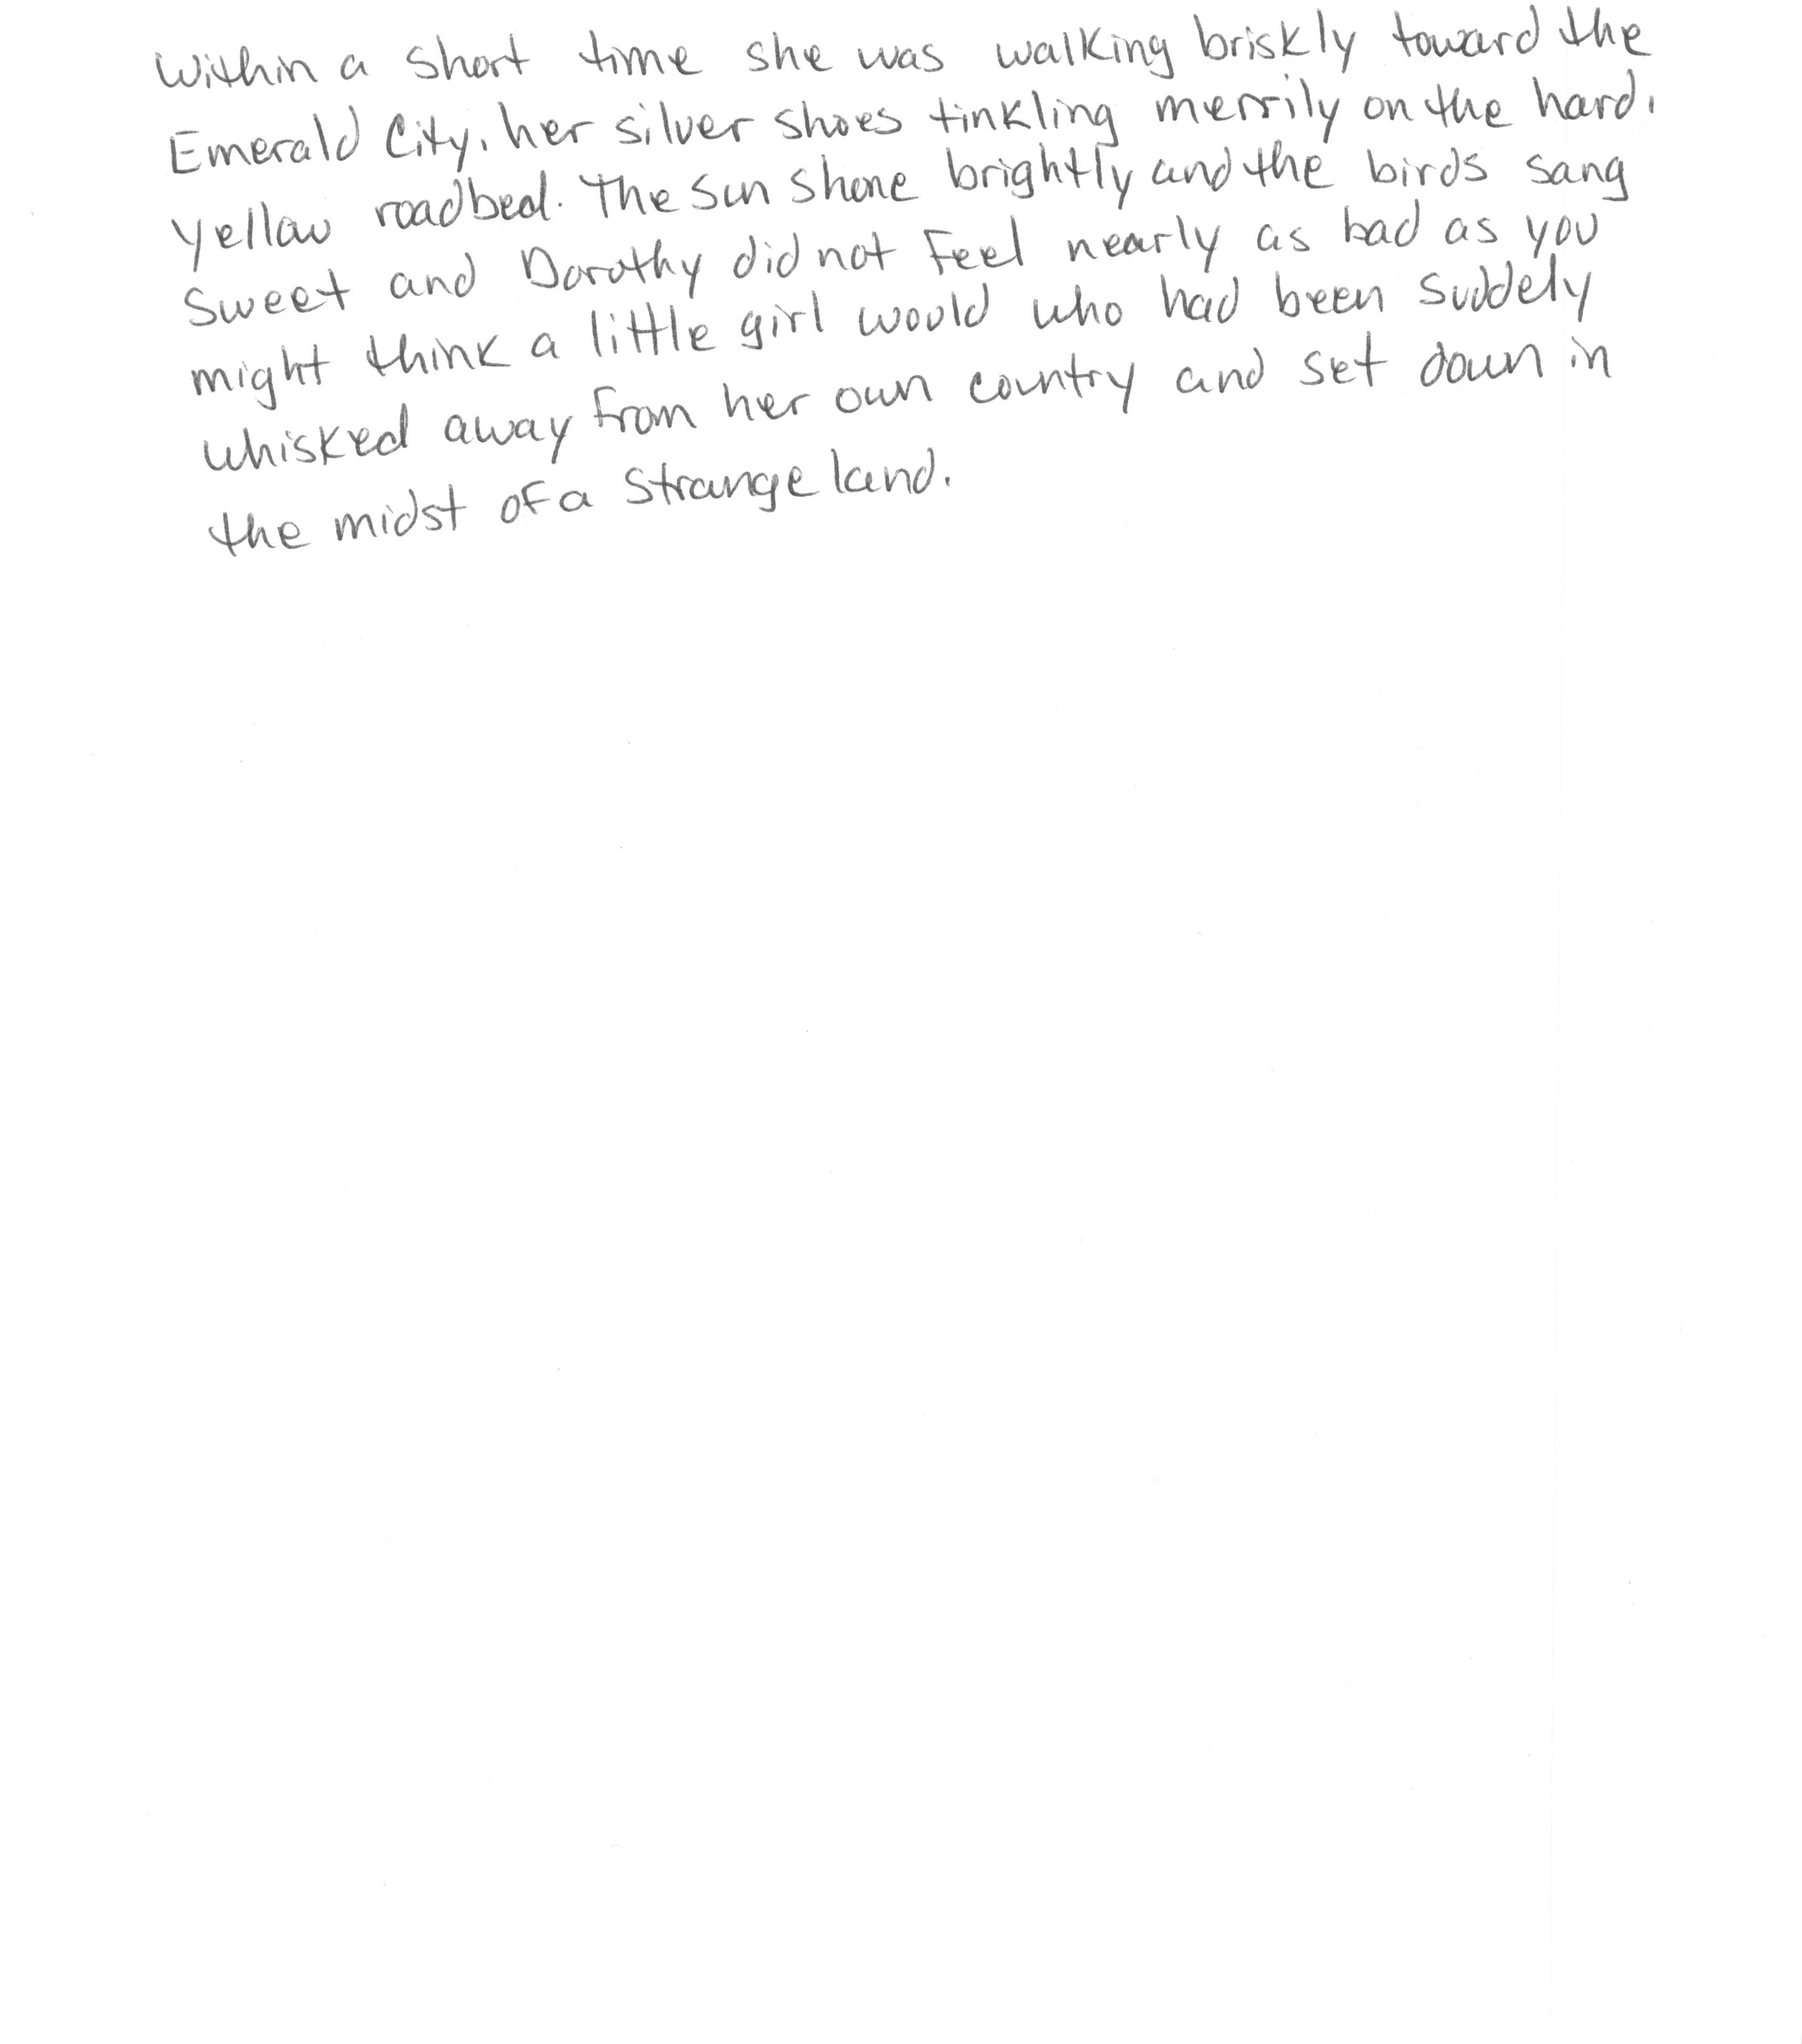 Within a short time she was walking briskly toward the
Emerald City, her silver shoes tinkling merrily on the hard,
yellow roadbed. The sun shone brightly and the birds sang
sweet and Dorothy did not feel nearly as bad as you
might think a little girl would who had been suddely
whisked away from her own country and set down in
the midst of a strange land.